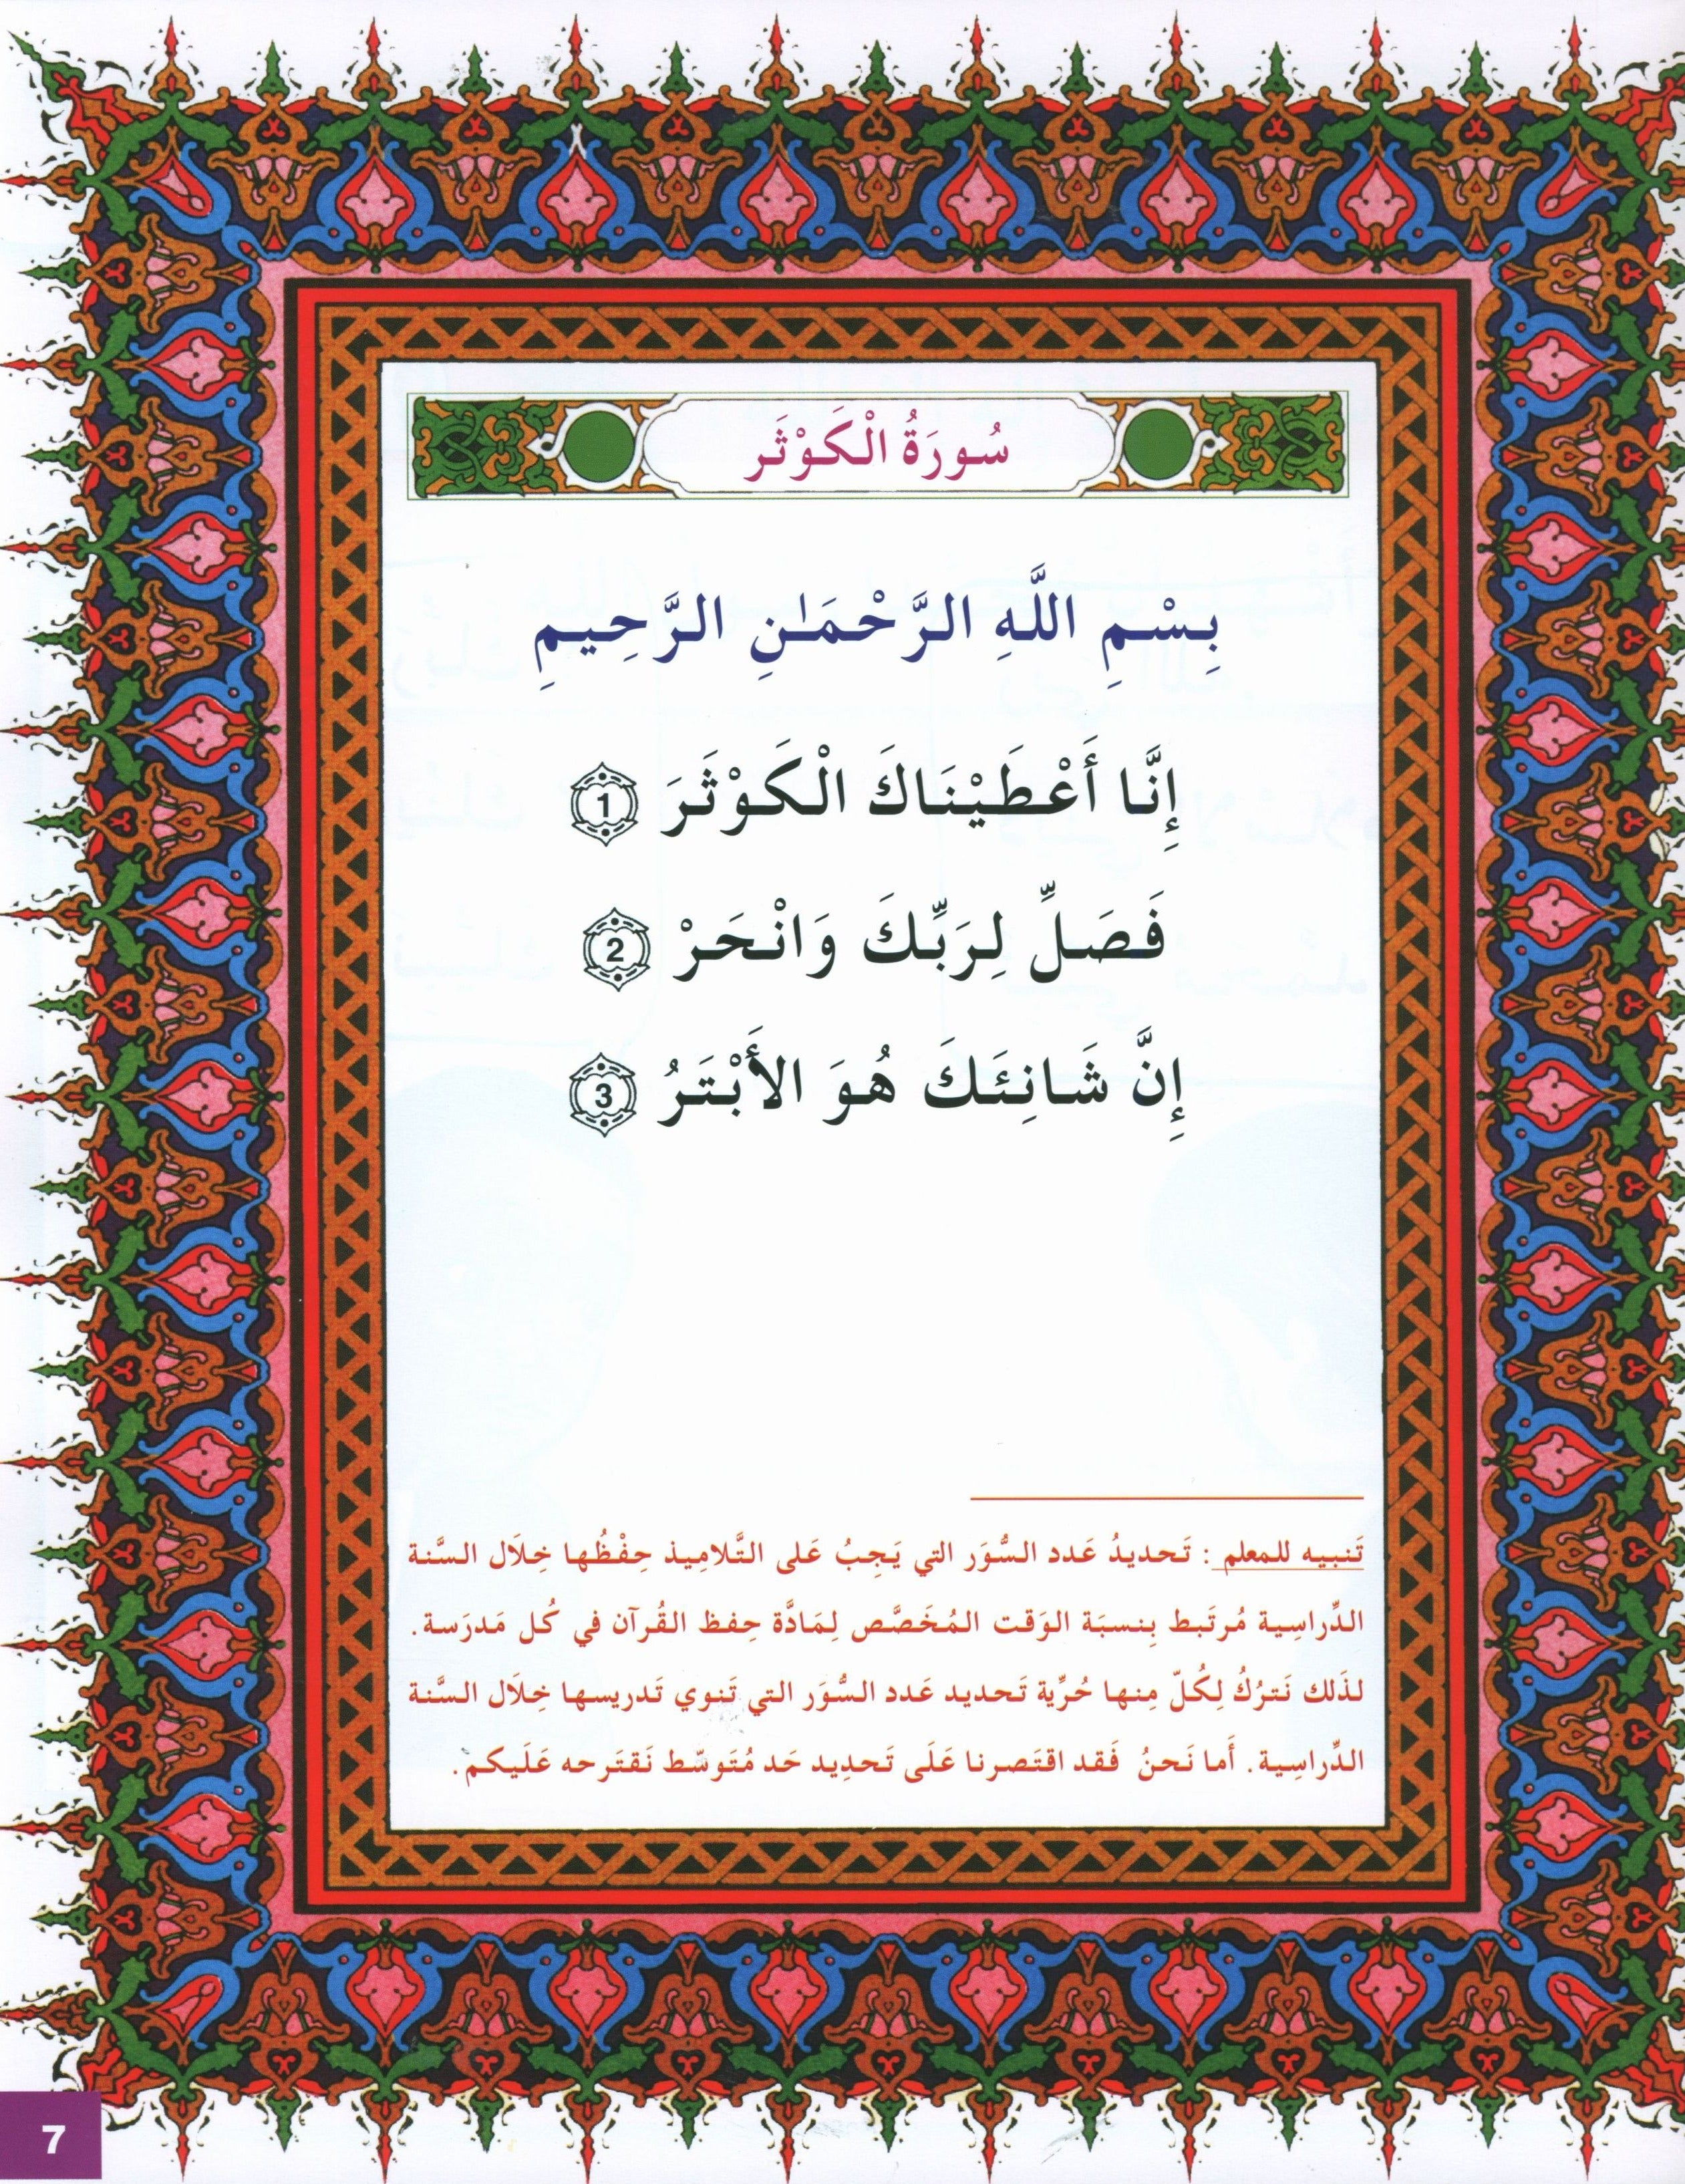 سُورَةُ الْكَوْثَر
بِسْمِ اللَّهِ الرَّحْمَٰنِ الرَّحِيمِ
إِنَّا أَعْطَيْنَاكَ الْكَوْثَرَ 1
فَصَلِّ لِرَبِّكَ وَانْحَرْ 2
إِنَّ شَانِئَكَ هُوَ الأَبْتَرُ 3
تَنبيه للمعلم : تَحديدُ عَدد السُّوَر التي يَجِبُ عَلى التَّلاميذ حِفْظُها خِلَال السَّنة
الدِّراسِية مُرتَبط بِنسبَة الوَقت المُخَصَّص لِمَادَّة حِفظ القُرآن في كُل مَدرَسة.
لذَلك نَترُكُ لِكُلّ مِنها حُرِّية تَحديد عَدد السُّوَر التي تَنوي تَدريسها خِلَال السَّنة
الدِّراسِية. أَما نَحنُ فَقد اقتَصرنا عَلَى تَحدِيد حَد مُتَوسّط نَقتَرحه عَلَيكم.
7